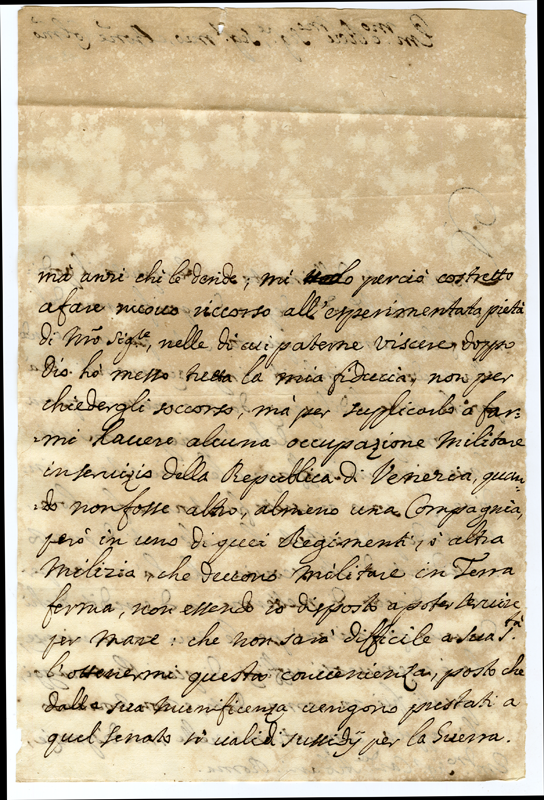 mà anzi chi le deride, mi vedo perciò costretto
a fare nuovo riccorso all'esperimentata pietà
di Nrõ Sigre, nelle di cui paterne viscere doppo
Dio hò messo tutta la mia fiducia, non per
chiedergli soccorso, mà per supplicarlo à far=
mi havere alcuna occupazione militare
in servizio della Republica di Venezia, quan=
do non fosse altro, almeno una Compagnia,
però in uno di quei Regimenti, ò altra
Milizia, che devono militare in Terra
ferma, non essendo io disposto a poter servire
per mare: che non sarà difficile a Sua Stà
l'ottenermi questa convenienza, posto che
dalla sua munificenza vengono prestati a
quel Senato sì validi sussidij per la Guerra.